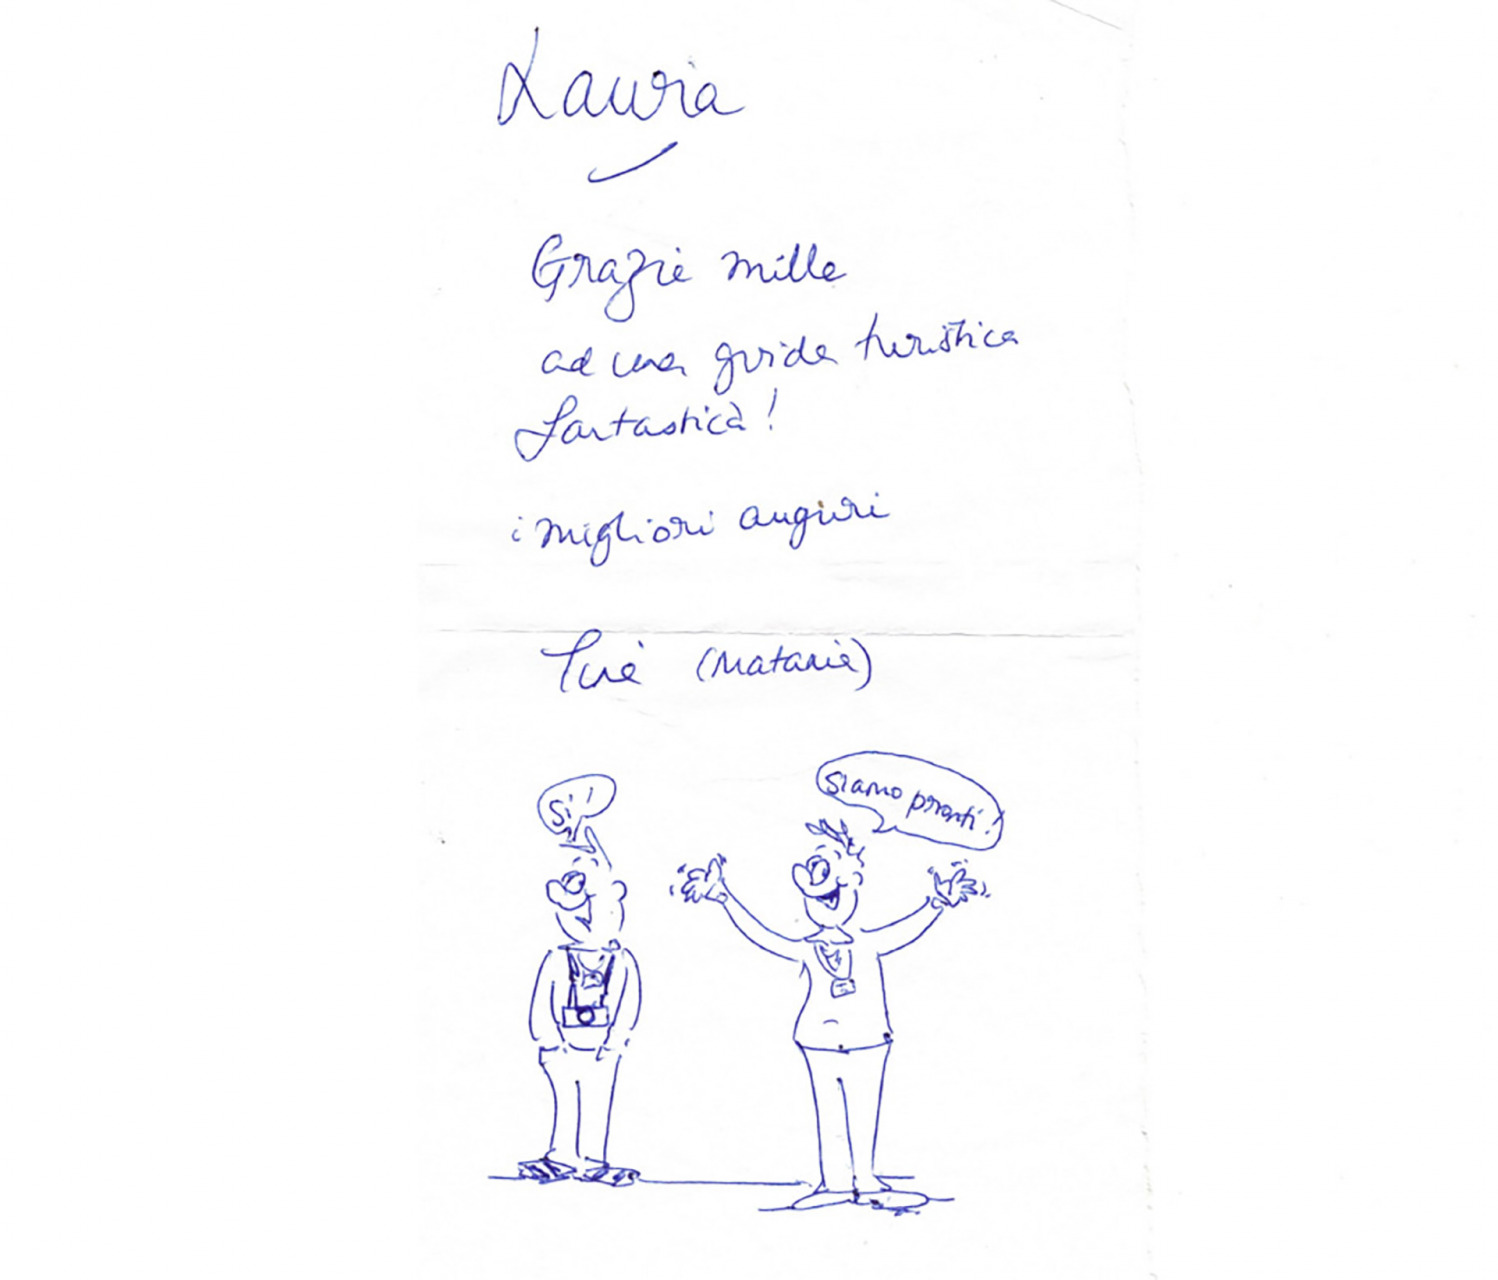 Laura
Grazie mille
ad una guida turistica
fantastica!
i migliori auguri
(Matanie)
Sì!
Siamo pronti!